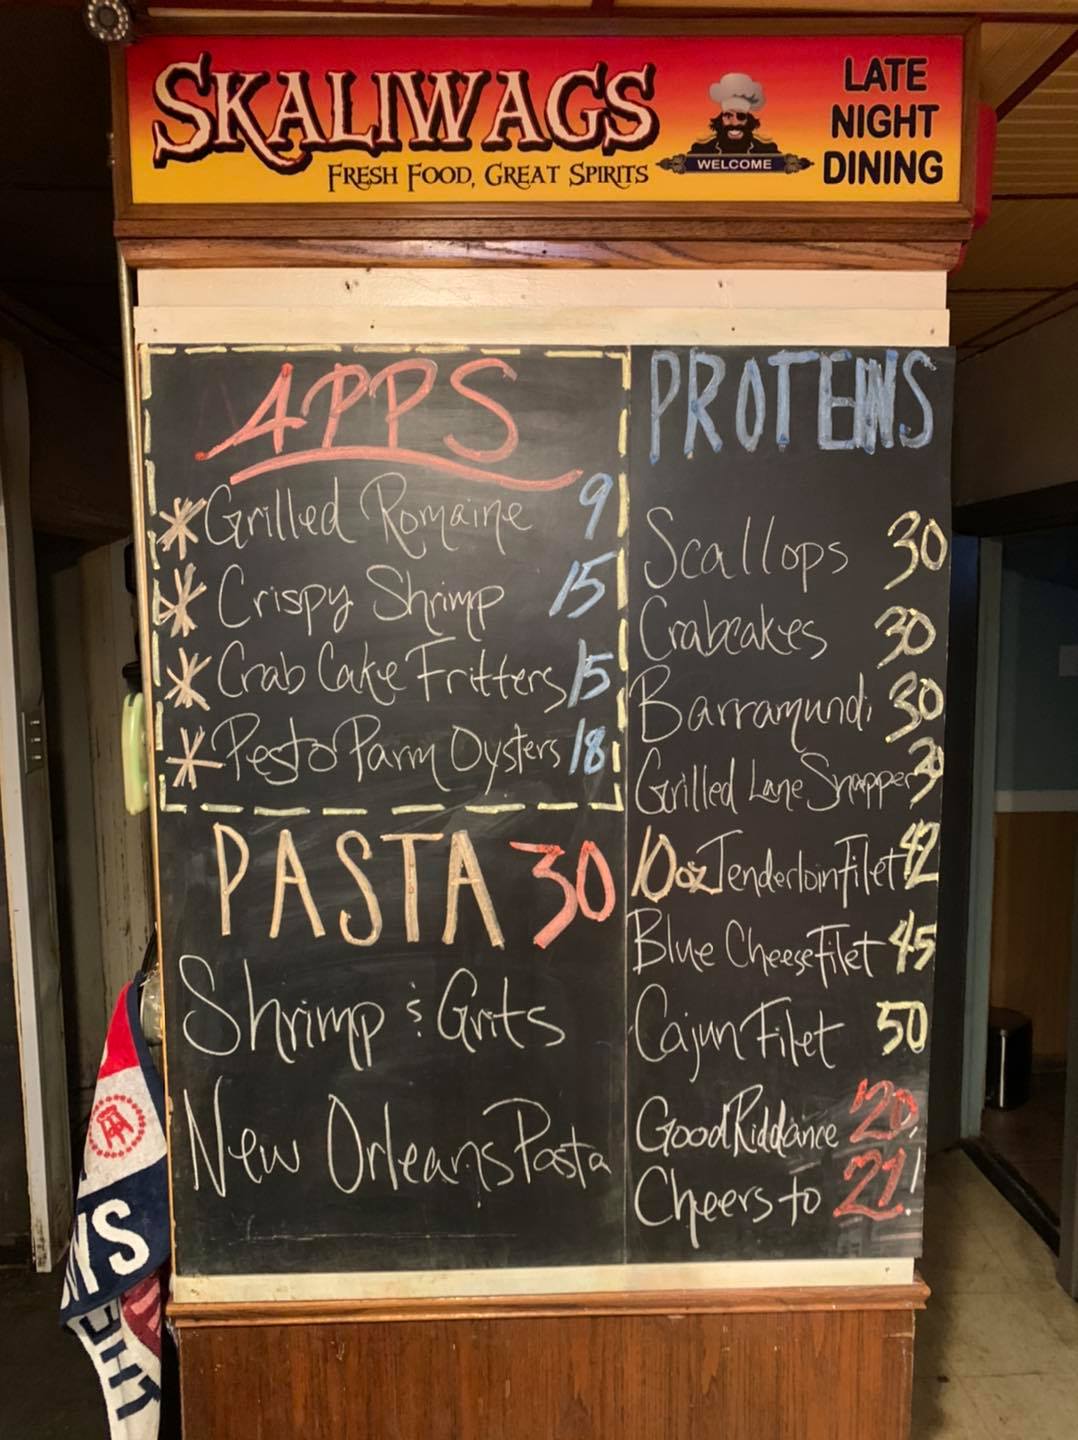 SKALIWAGS
FRESH FOOD, GREAT SPIRITS
WELCOME
LATE
NIGHT
DINING
APPS
* Grilled Romaine 9
* Crispy Shrimp 15
* Crab Cake Fritters 15
* Pesto Parm Oysters 18
PASTA 30
Shrimp & Grits
New Orleans Pasta
PROTEINS
Scallops 30
Crabcakes 30
Barramundi 30
Grilled Lane Snapper 30
10oz Tenderloin Filet 42
Blue Cheese Filet 45
Cajun Filet 50
Good Riddance '20,
Cheers to 21!